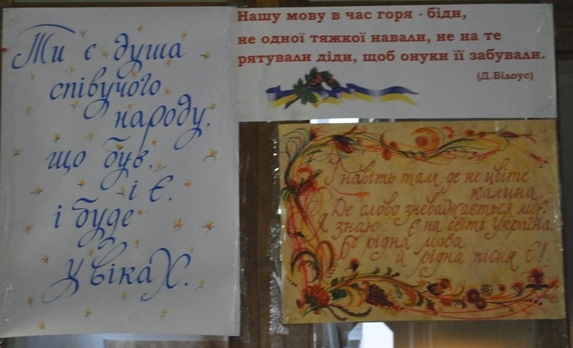 Ти є душа
співучого
народу.
що був.
і є.
і буде
у віках.
Нашу мову в час горя - біди,
не одної тяжкої навали, не на те
рятували діди, щоб онуки її забували.
(Д.Білоус)
І навіть там, де не цвіте
калина
Де слово зневажається моє.
знаю є на світі Україна
Бо рідна мова
й рідна пісня є!